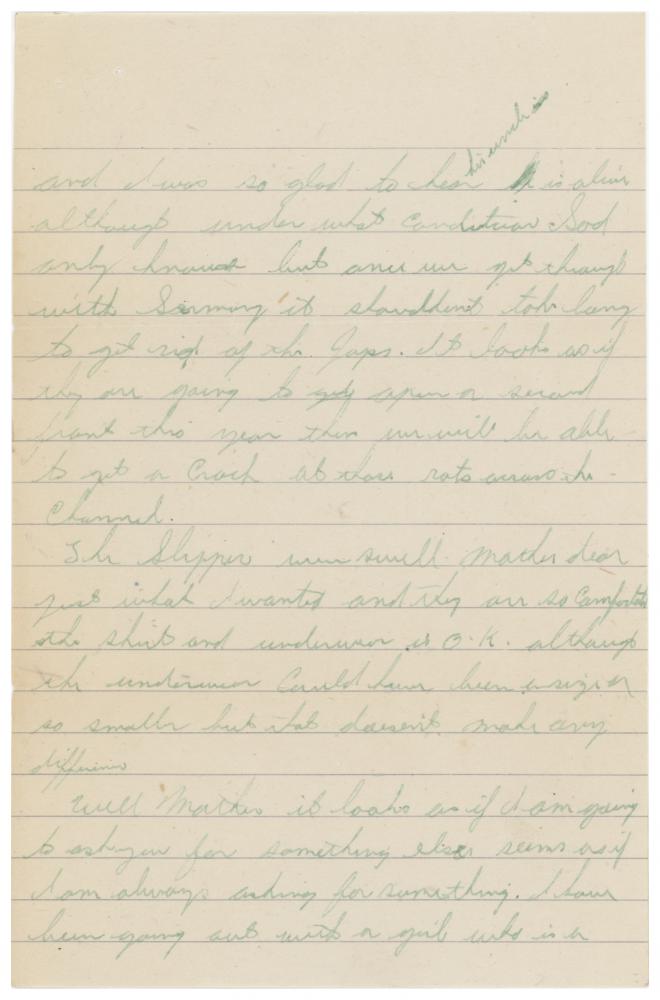 his uncle is
and I was so glad to hear is alive
although under what Condition God
only knows but once we get through
with Germany it shoulddent take long
to get rid of the Japs. It looks as if
they are going to open a second
front this year then we will be able
to get a Crack at those rats across the
Channel.
The Slipper were swell Mother dear
just what I wanted and they are so Comfortable
the shirt and underwear is O.K. although
the underwear Could have been a size or
so smaller but that doesent make any
difference
Well Mother it looks as if I am going
to ask you for something else seems as if
I am always asking for something. I have
been going out with a girl who is a